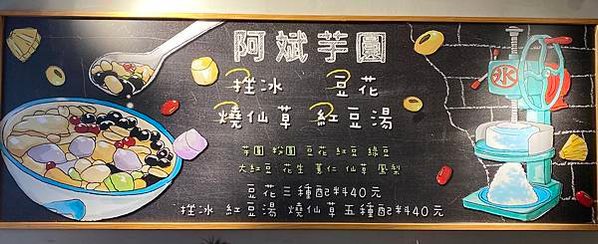 阿斌芋圓
挫冰 豆花
燒仙草 紅豆湯
芋圓 粉圓 豆花 紅豆 綠豆
大紅豆 花生 薏仁 仙草 鳳梨
豆花三種配料40元
挫冰 紅豆湯 燒仙草五種配料40元
冰